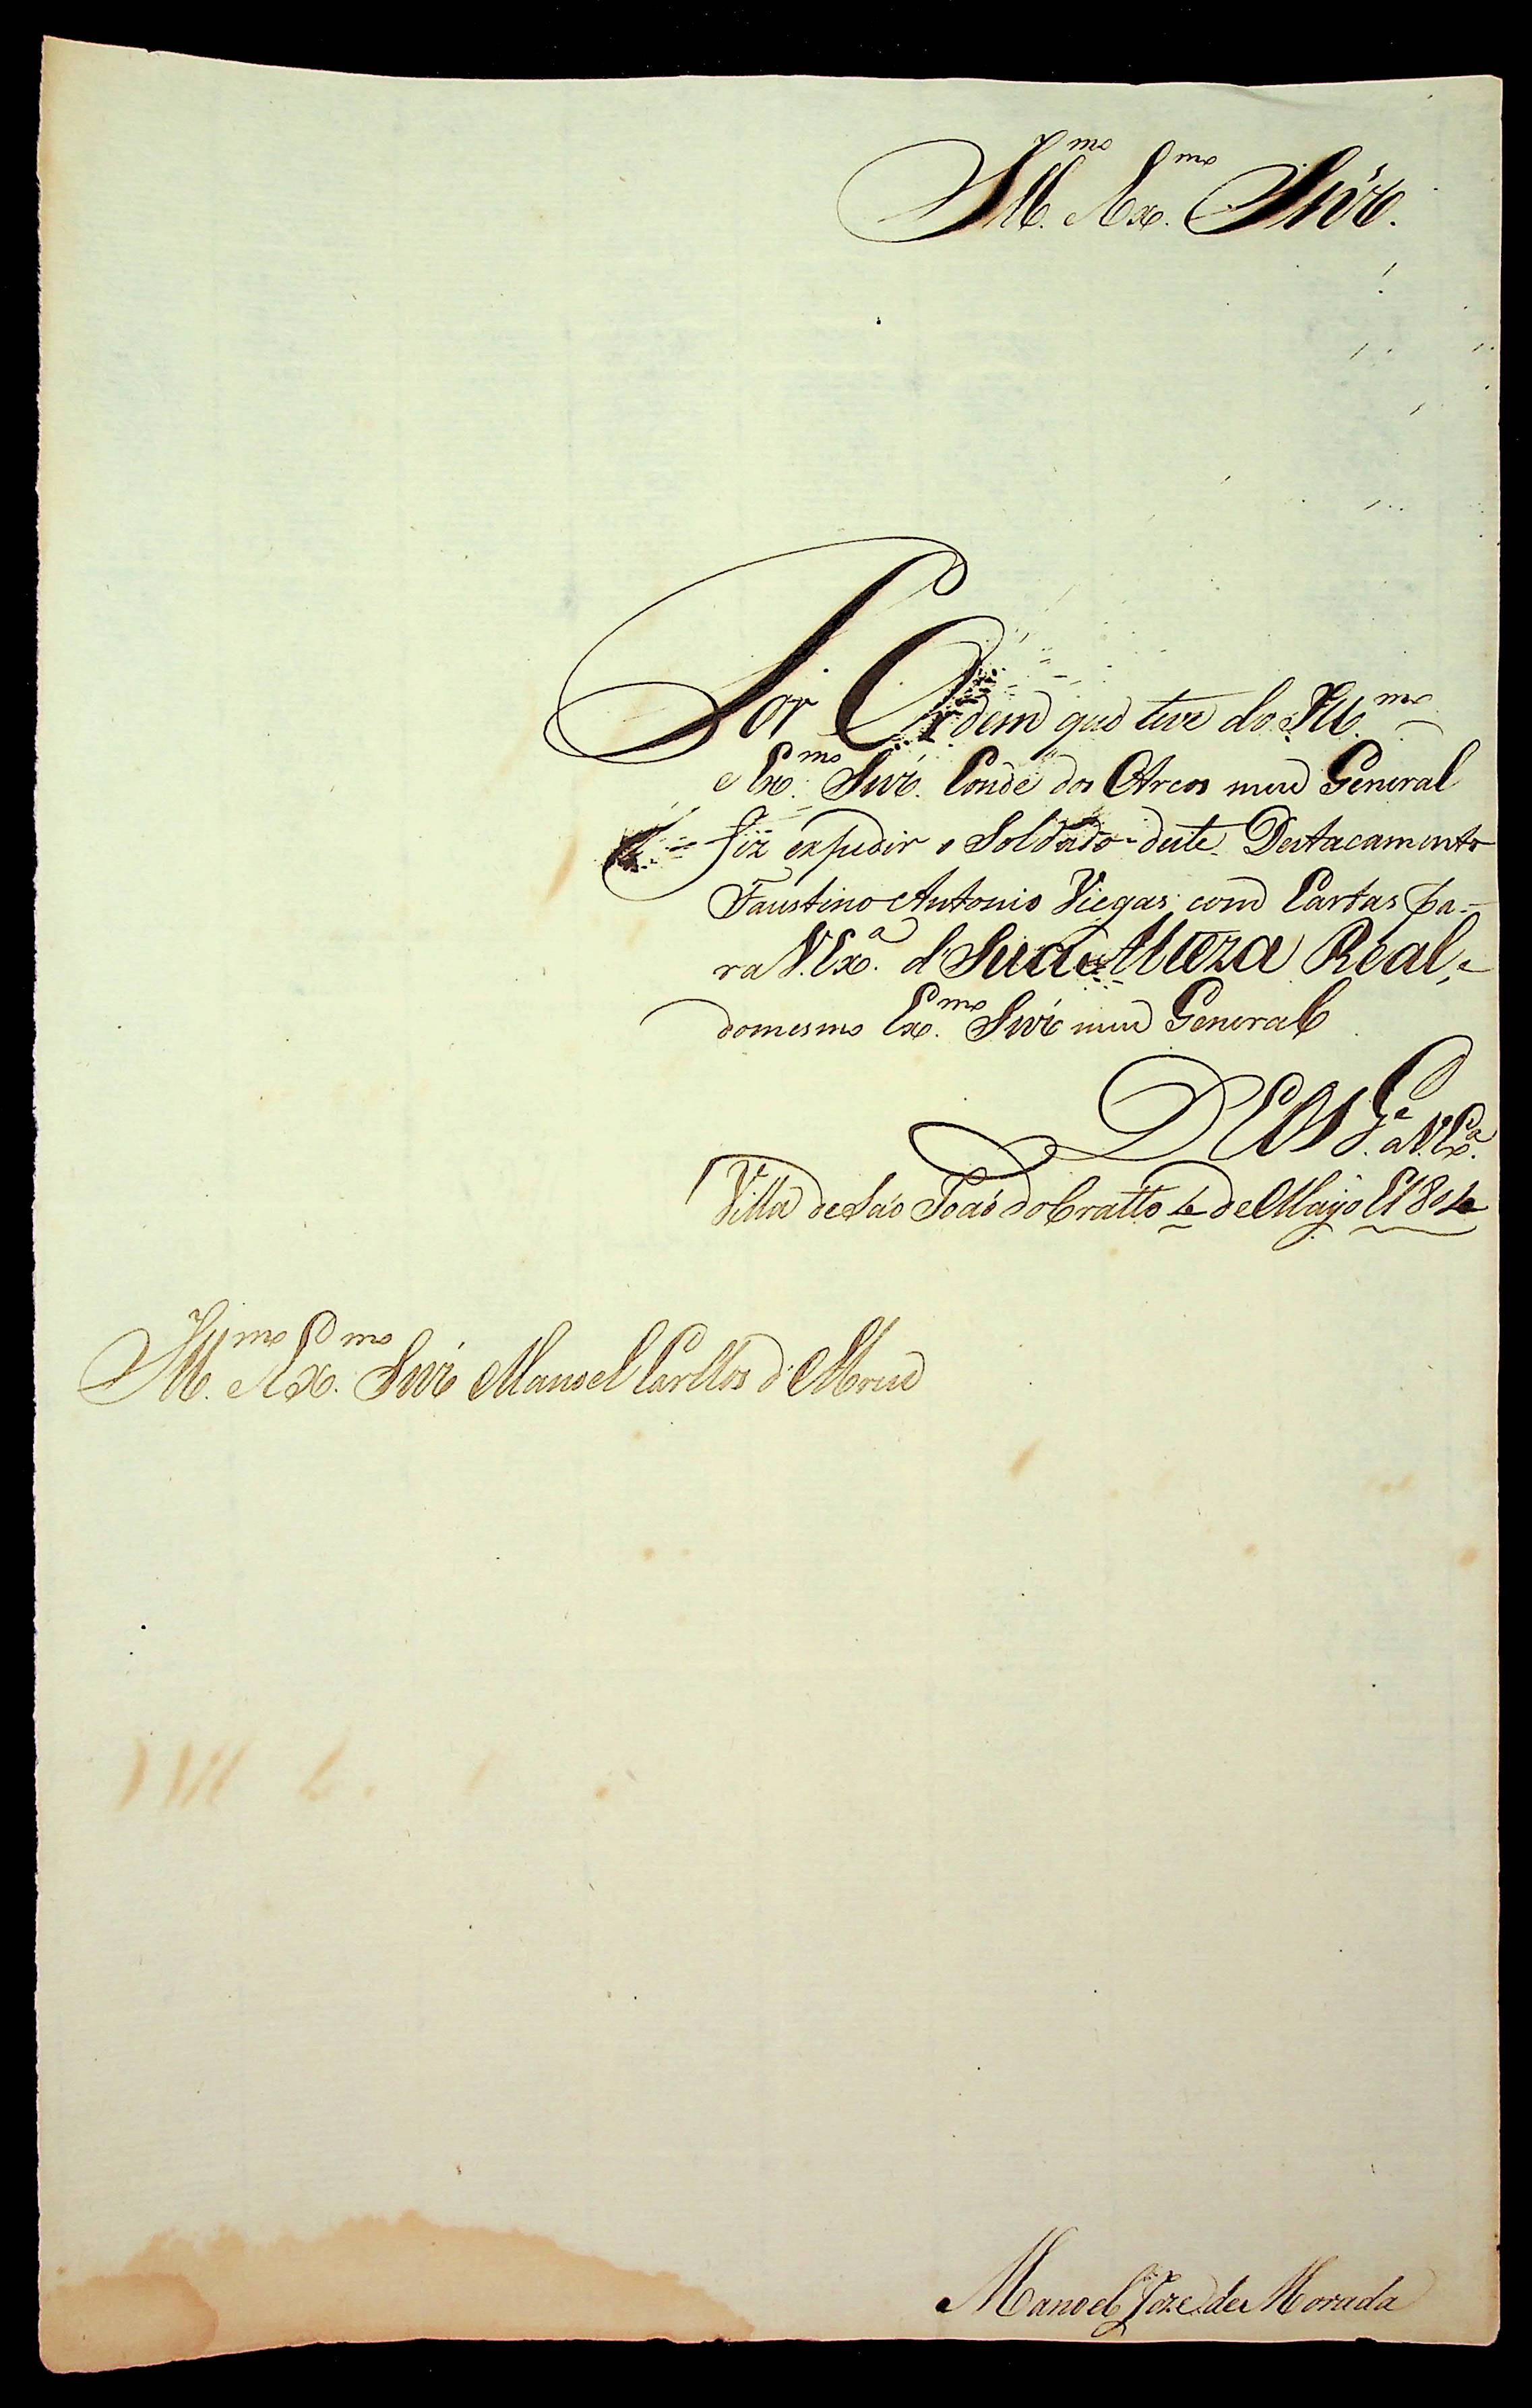 Ill.mo e Ex.mo Snr.
Por Ordem que tive do Ill.mo
e Ex.mo Snr. Conde dos Arcos meu General
fiz expedir o Soldado deste Destacamento
Faustino Antonio Viegas com Cartas pa-
ra V. Ex.a d'Sua Alteza Real, e
do mesmo Ex.mo Snr meu General
DEOS G.e a V. Ex.a
Villa de São João do Cratto 4 de Mayo 1804
Ill.mo e Ex.mo Snr Manoel Carllos d'Abreu
Manoel Joze de